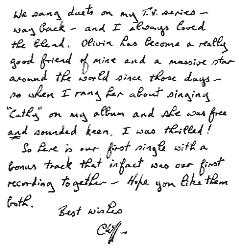 We sang duets on my T.V. series -
way back - and I always loved
the blend. Olivia has become a really
good friend of mine and a massive star
around the world since those days -
so when I rang her about singing
"Cathy" on my album and she was free
and sounded keen, I was thrilled!
So here is our first single with a
bonus track that infact was our first
recording together - Hope you like them
both.
Best wishes
Cliff